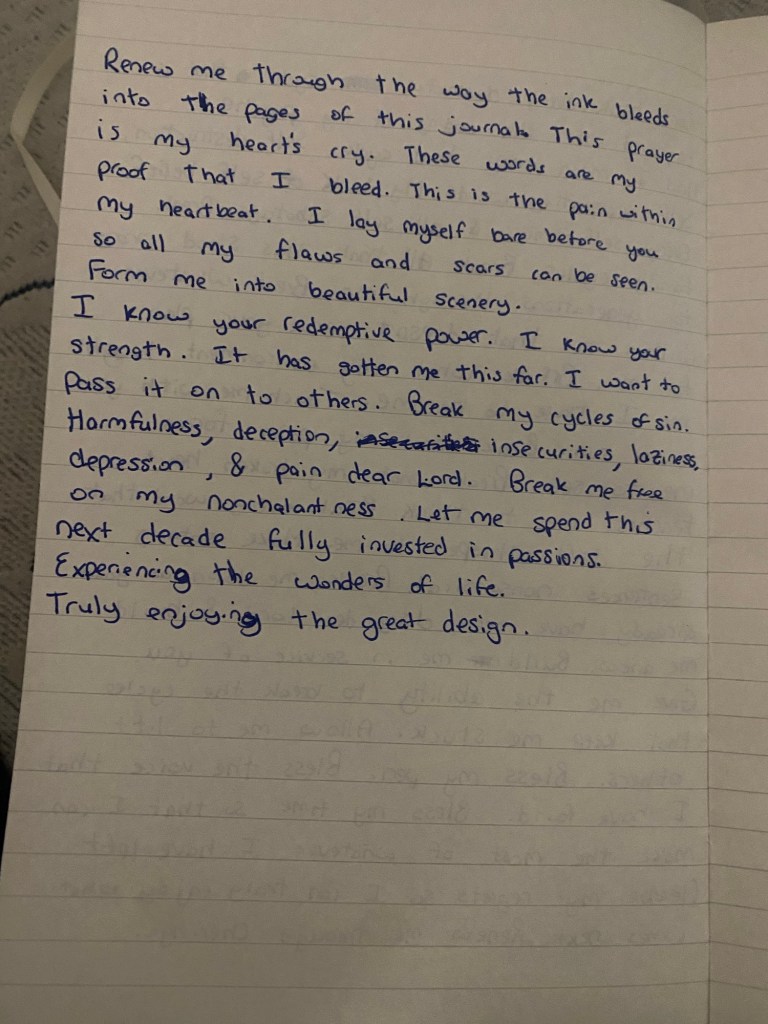 Renew me through the way the ink bleeds
into the pages of this journal. This prayer
is my heart's cry. These words are my
proof that I bleed. This is the pain within
my heartbeat. I lay myself bare before you
so all my flaws and scars can be seen.
Form me into beautiful scenery.
I know your redemptive power. I know your
strength. It has gotten me this far. I want to
pass it on to others. Break my cycles of sin.
Harmfulness, deception, insecurities, laziness,
depression, & pain dear Lord. Break me free
on my nonchalantness. Let me spend this
next decade fully invested in passions.
Experiencing the wonders of life.
Truly enjoying the great design.